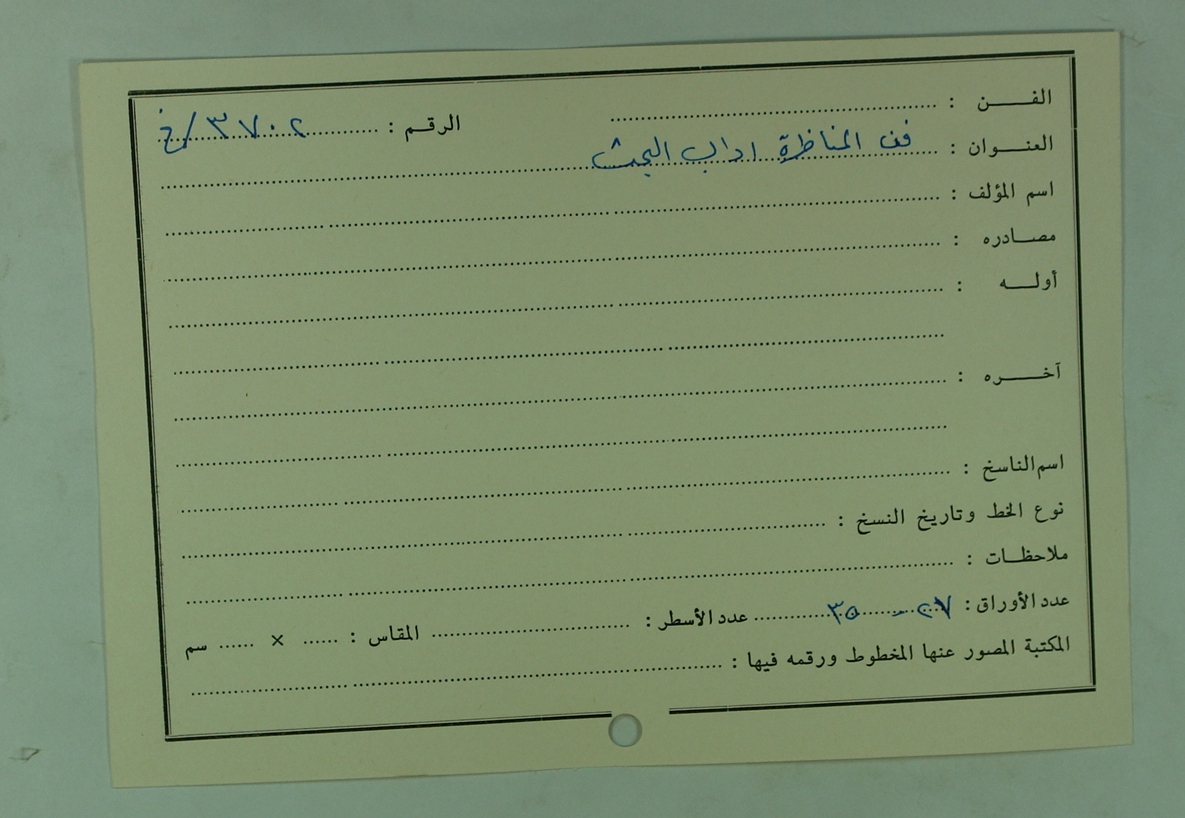 الفن : الرقم : ٣٧٠٢/خ
العنوان : فن المناظرة اداب البحث
اسم المؤلف :
مصادره :
أوله :
آخره :
اسم الناسخ :
نوع الخط وتاريخ النسخ :
ملاحظات :
عدد الأوراق : ٢٧ - ٣٥ عدد الأسطر : المقاس : × سم
المكتبة المصور عنها المخطوط ورقمه فيها :